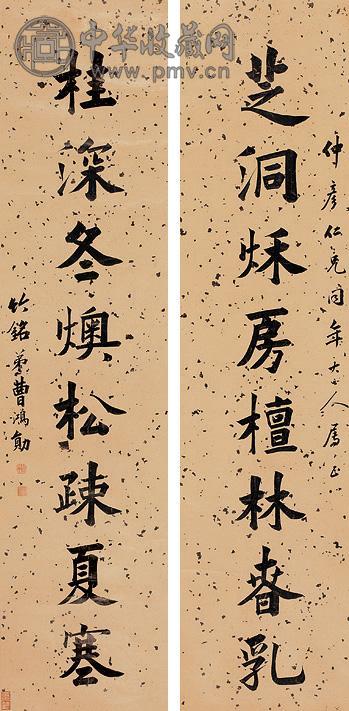 中华收藏网
www.pmv.cn
仲彥仁兄同年大人属正
芝洞秌房檀林春乳
桂深冬燠松疎夏寒
竹銘弟曹鴻勛